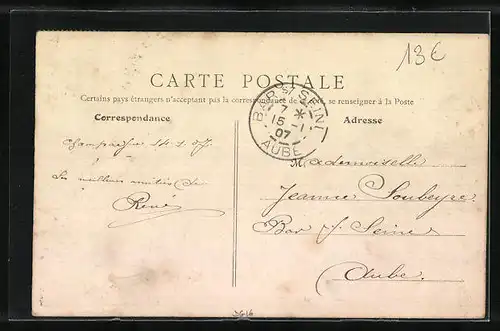 13€
CARTE POSTALE
Certains pays étrangers n'acceptant pas la correspondance de se renseigner à la Poste
Correspondance
Adresse
BAR S/ SEINE
7 *
15 -1
07
AUBE
14-1-07
Les meilleures amitiés de
René
Mademoiselle
Jeanne Soubeyre
Bar s/ Seine
Aube.